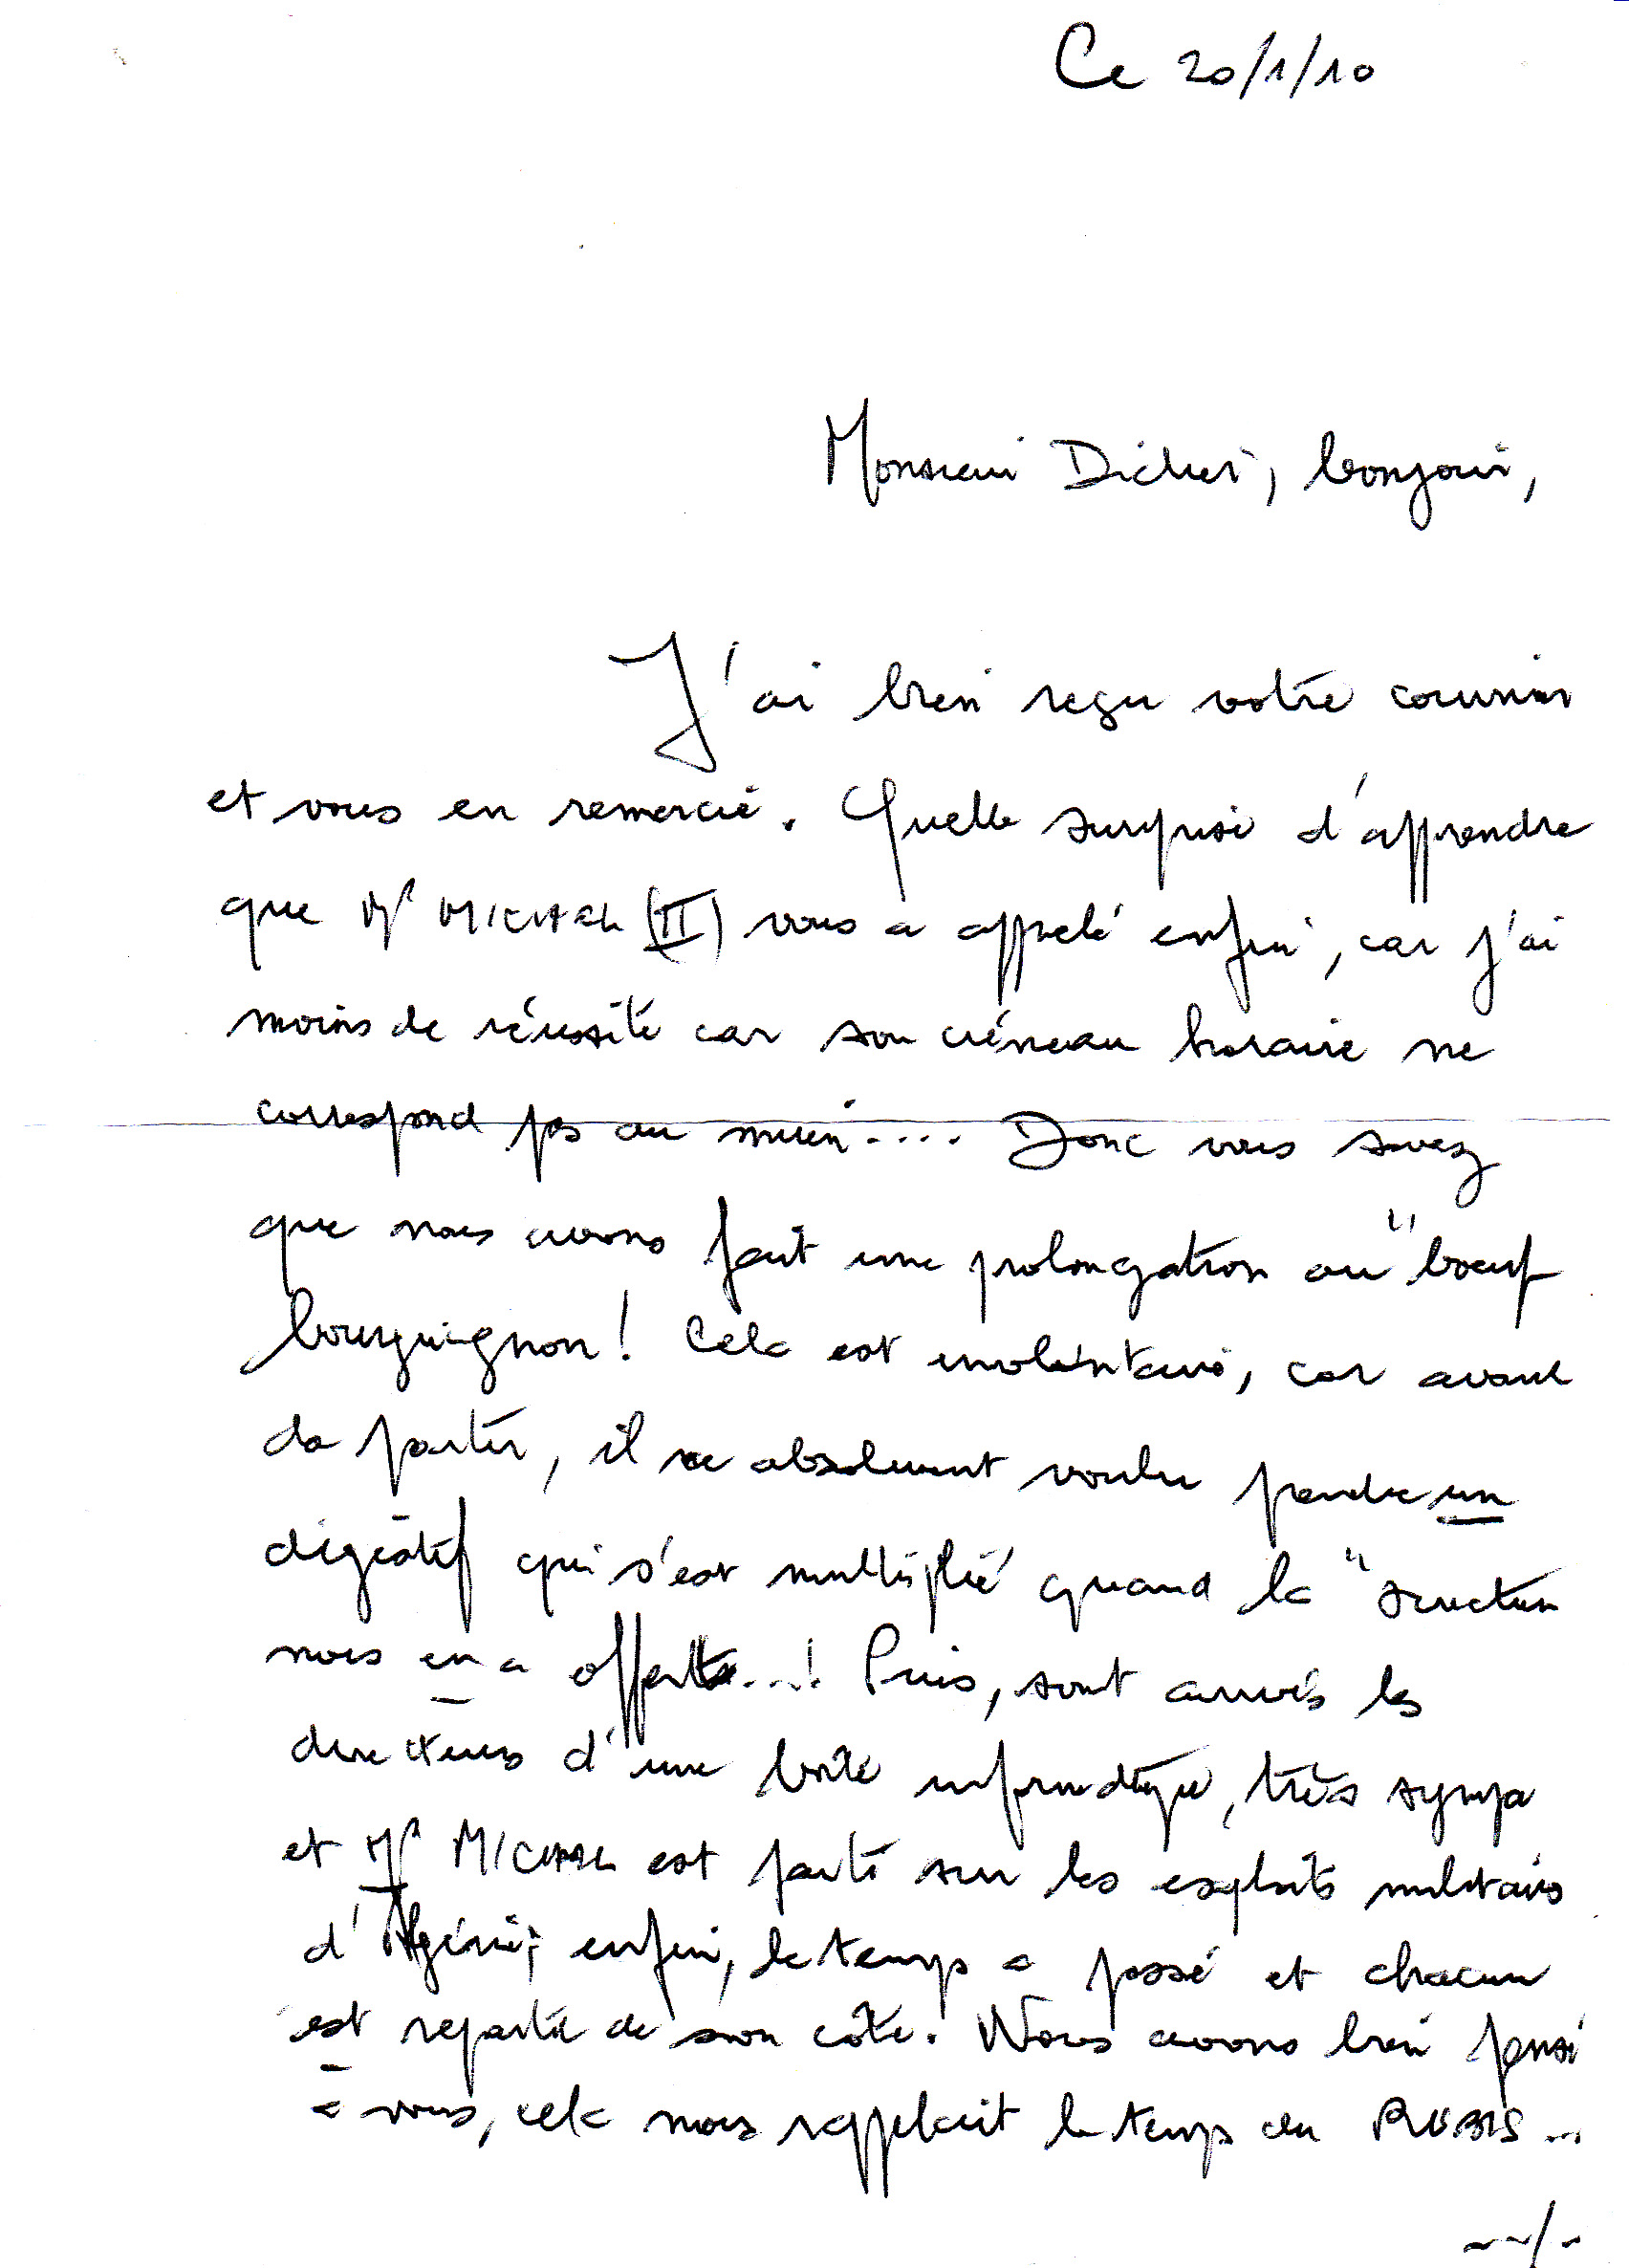 Ce 20/1/10
Monsieur Dichet, bonjour,
J'ai bien reçu votre courrier
et vous en remercie. Quelle surprise d'apprendre
que Mr MICHAEL (II) vous a appelé enfin, car j'ai
moins de réussite car son créneau horaire ne
correspond pas au mien.... Donc vous savez
que nous avons fait une prolongation au "boeuf
bourguignon! Cela est involontaire, car avant
de partir, il a absolument voulu prendre un
digestif qui s'est multiplié quand la "
nous en a offert...! Puis, sont arrivés les
directeurs d'une boîte informatique, très sympa
et Mr MICHAEL est parti sur les exploits militaires
d'Algérie; enfin, le temps a passé et chacun
est reparti de son côté. Nous avons bien pensé
à vous, cela nous rappelait le temps du RUBIS...
--/-